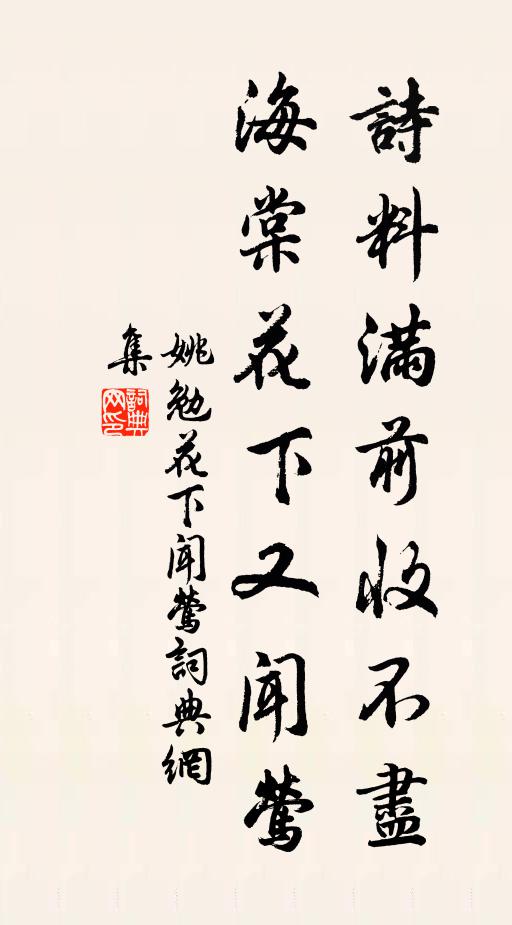 詩料滿前收不盡
海棠花下又聞鶯
姚勉花下聞鶯詞典網
集
詞典
网印